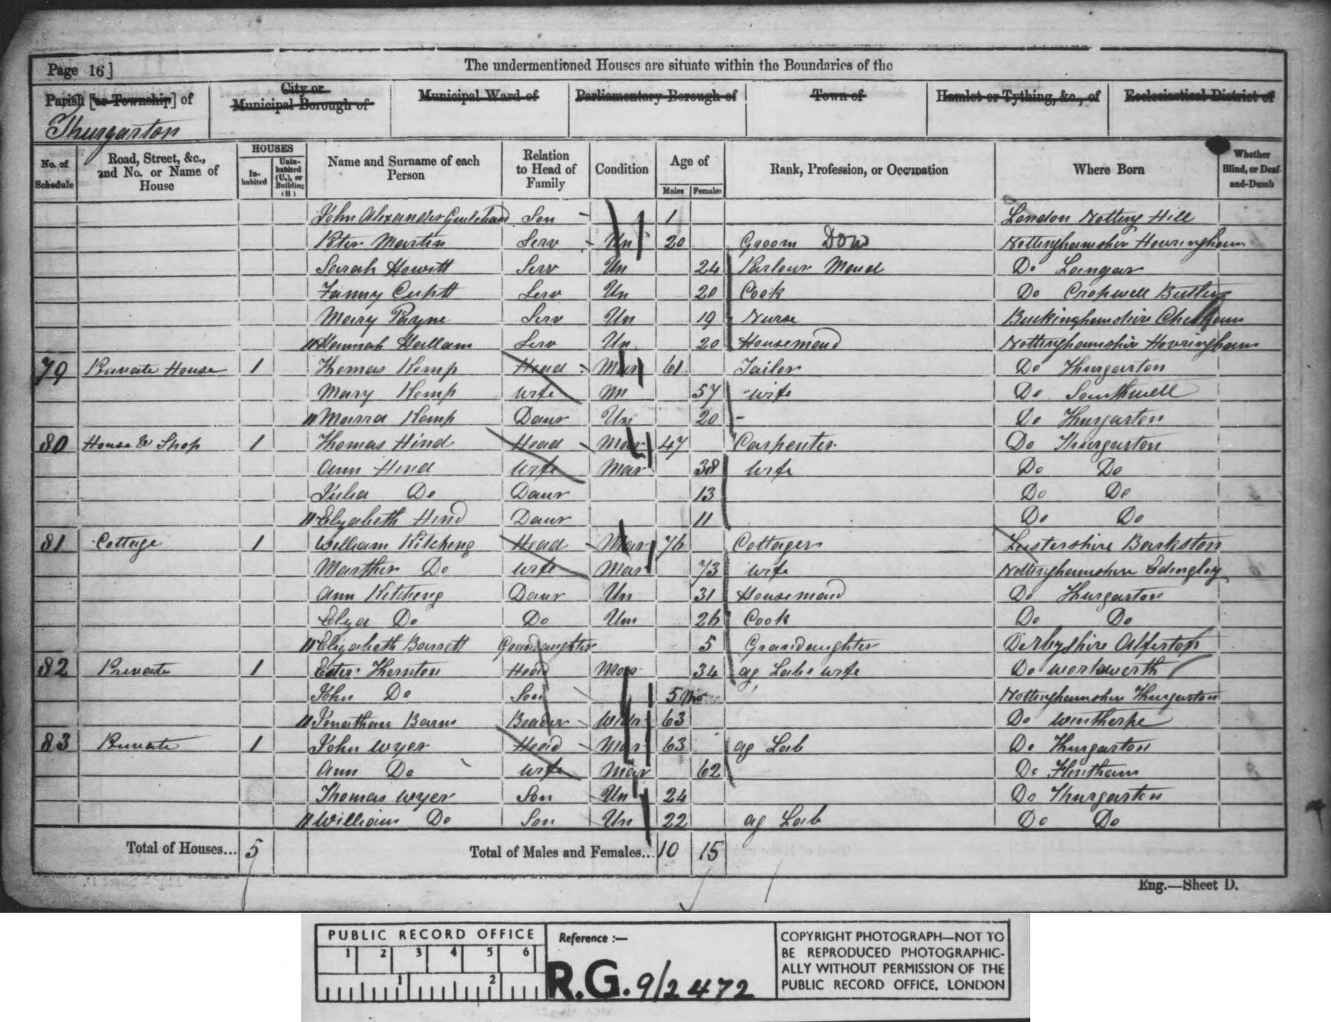 Page 16]
The undermentioned Houses are situate within the Boundaries of the
Parish [or Township] of
City or Municipal Borough of
Municipal Ward of
Parliamentary Borough of
Town of
Hamlet or Tything, &c., of
Ecclesiastical District of
Thurgarton
No. of Schedule
Road, Street, &c., and No. or Name of House
HOUSES
Inhabited
Uninhabited (U.), or Building (B)
Name and Surname of each Person
Relation to Head of Family
Condition
Age of
Males
Females
Rank, Profession, or Occupation
Where Born
Whether Blind, or Deaf-and-Dumb
John Alexander Son 1 London Notting Hill
Peter Martin Serv Un 20 Groom Dom Nottinghamshire Hoveringham
Sarah Howitt Serv Un 24 Parlour Maid Do Langar
Fanny Serv Un 20 Cook Do Cropwell Butler
Mary Payne Serv Un 19 Nurse Buckinghamshire Chesham
Hannah Hallam Serv Un 20 Housemaid Nottinghamshire Hoveringham
79 Private House 1 Thomas Kemp Head Mar 61 Tailor Do Thurgarton
Mary Kemp Wife M 57 Wife Do Southwell
Maria Kemp Daur Un 20 - Do Thurgarton
80 House & Shop 1 Thomas Hind Head Mar 47 Carpenter Do Thurgarton
Ann Hind Wife Mar 38 Wife Do Do
Julia Do Daur 13 Do Do
Elizabeth Hind Daur 11 Do Do
81 Cottage 1 William Kitching Head Mar 76 Cottager Leistershire Barkston
Marther Do Wife Mar 73 Wife Nottinghamshire Edingley
Ann Kitching Daur Un 31 Housemaid Do Thurgarton
Eliza Do Do Un 26 Cook Do Do
Elizabeth Barrett Grandaughter 5 Grandaughter Derbyshire Alfreton
82 Private 1 Thornton Head Mar 34 ag Labs wife Do
John Do Son 5 Mo Nottinghamshire Thurgarton
Jonathan Barns Boader Widr 63 Do Winthorpe
83 Private 1 John Wyer Head Mar 63 ag Lab Do Thurgarton
Ann Do Wife Mar 62 Do
Thomas Wyer Son Un 24 Do Thurgarton
William Do Son Un 22 ag Lab Do Do
Total of Houses... 5
Total of Males and Females... 10 15
Eng.—Sheet D.
PUBLIC RECORD OFFICE
1 2 3 4 5 6
1 2
Reference :—
R.G. 9/2472
COPYRIGHT PHOTOGRAPH—NOT TO
BE REPRODUCED PHOTOGRAPHIC-
ALLY WITHOUT PERMISSION OF THE
PUBLIC RECORD OFFICE, LONDON